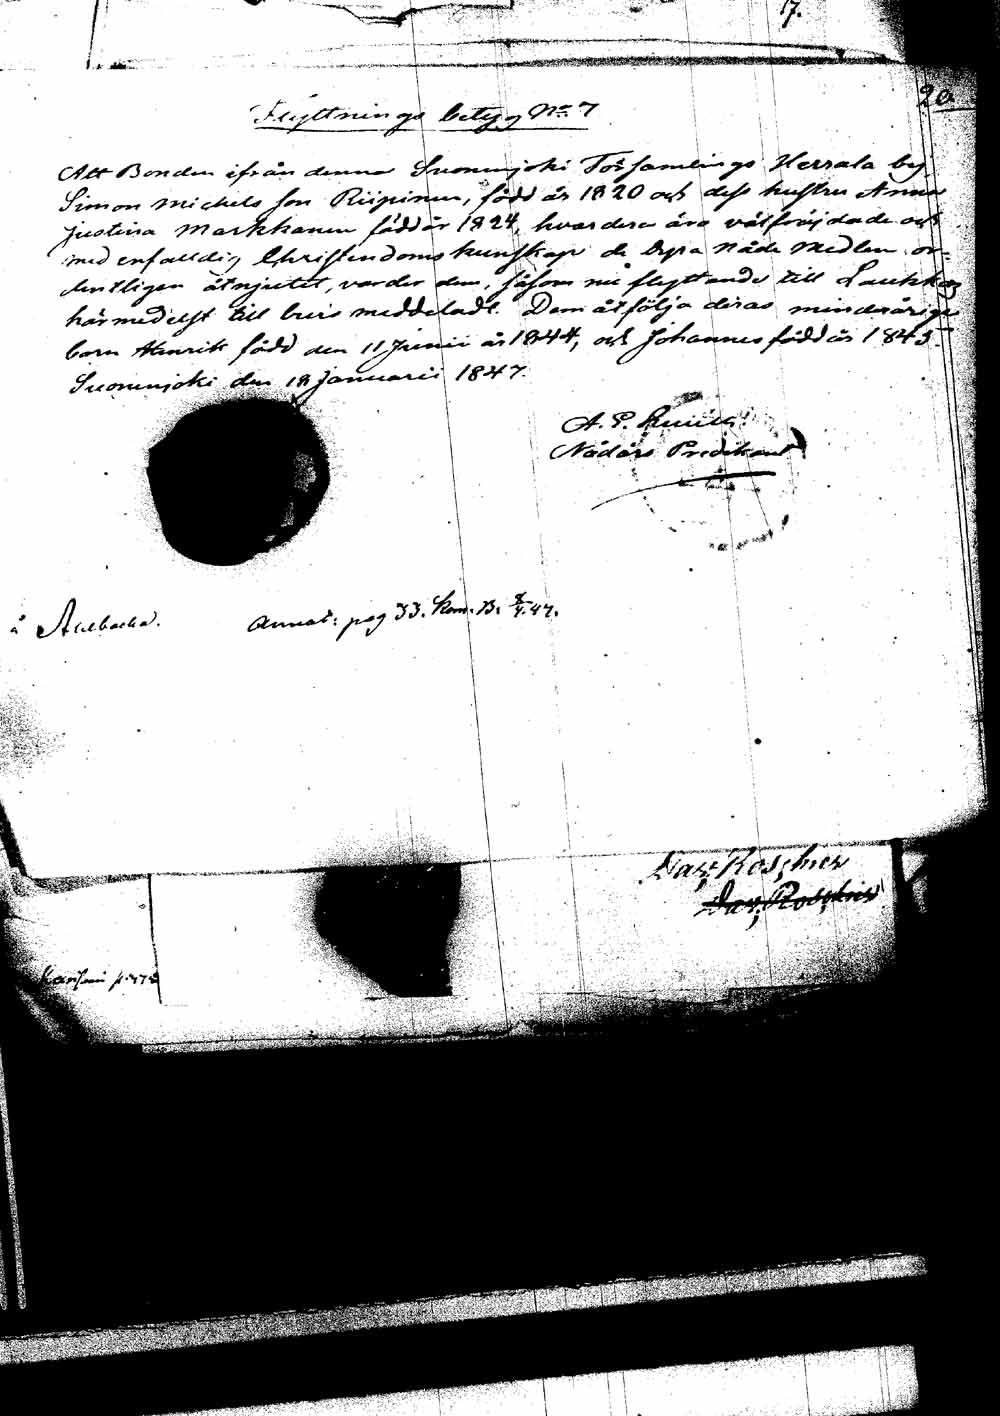 17.
20
Flyttnings betyg No 7
Att Bonden ifrån denna Suonenjoki Församlings Herrala by
Simon Michelsson Riipinen, född år 1820 och dess hustru Anna
Justina Markkanen född år 1824, hvardera äro välfräjdade och
med enfalldig Christendoms kunskap de dyra Nåde Medlen or-
dentligen åtnjutit, varder dem, såsom nu flyttande till Laukkas
härmedelst till bevis meddeladt. Dem åtfölja deras minderåriga
barn Henrik född den 11 Junii år 1844, och Johannes född år 1845.
Suonenjoki den 18 Januarii 1847.
A. P.
Nådårs Predikant
å
Annot: pag 33. Kom. B. 47.